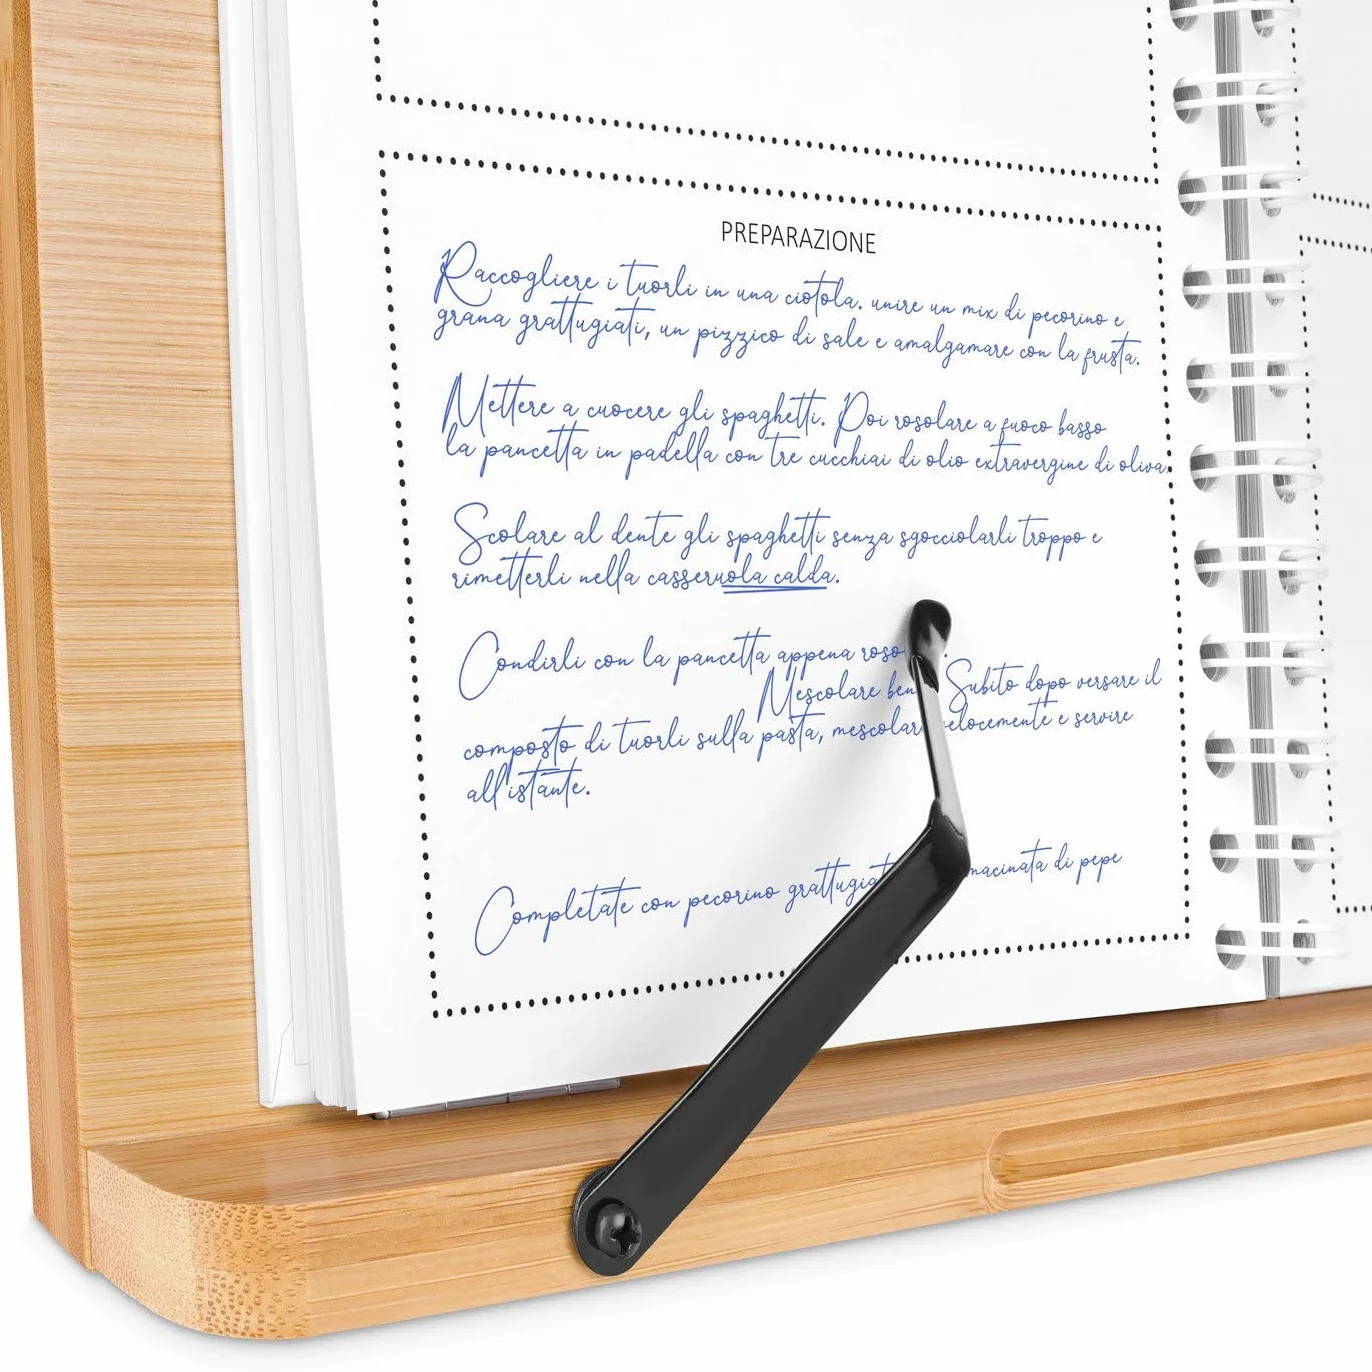 PREPARAZIONE
Raccogliere i tuorli in una ciotola. unire un mix di pecorino e
grana grattugiati, un pizzico di sale e amalgamare con la frusta.
Mettere a cuocere gli spaghetti. Poi rosolare a fuoco basso
la pancetta in padella con tre cucchiai di olio extravergine di oliva.
Scolare al dente gli spaghetti senza sgocciolarli troppo e
rimetterli nella casseruola calda.
Condirli con la pancetta appena
Mescolare Subito dopo versare il
composto di tuorli sulla pasta, e servire
all'istante.
Completate con pecorino di pepe